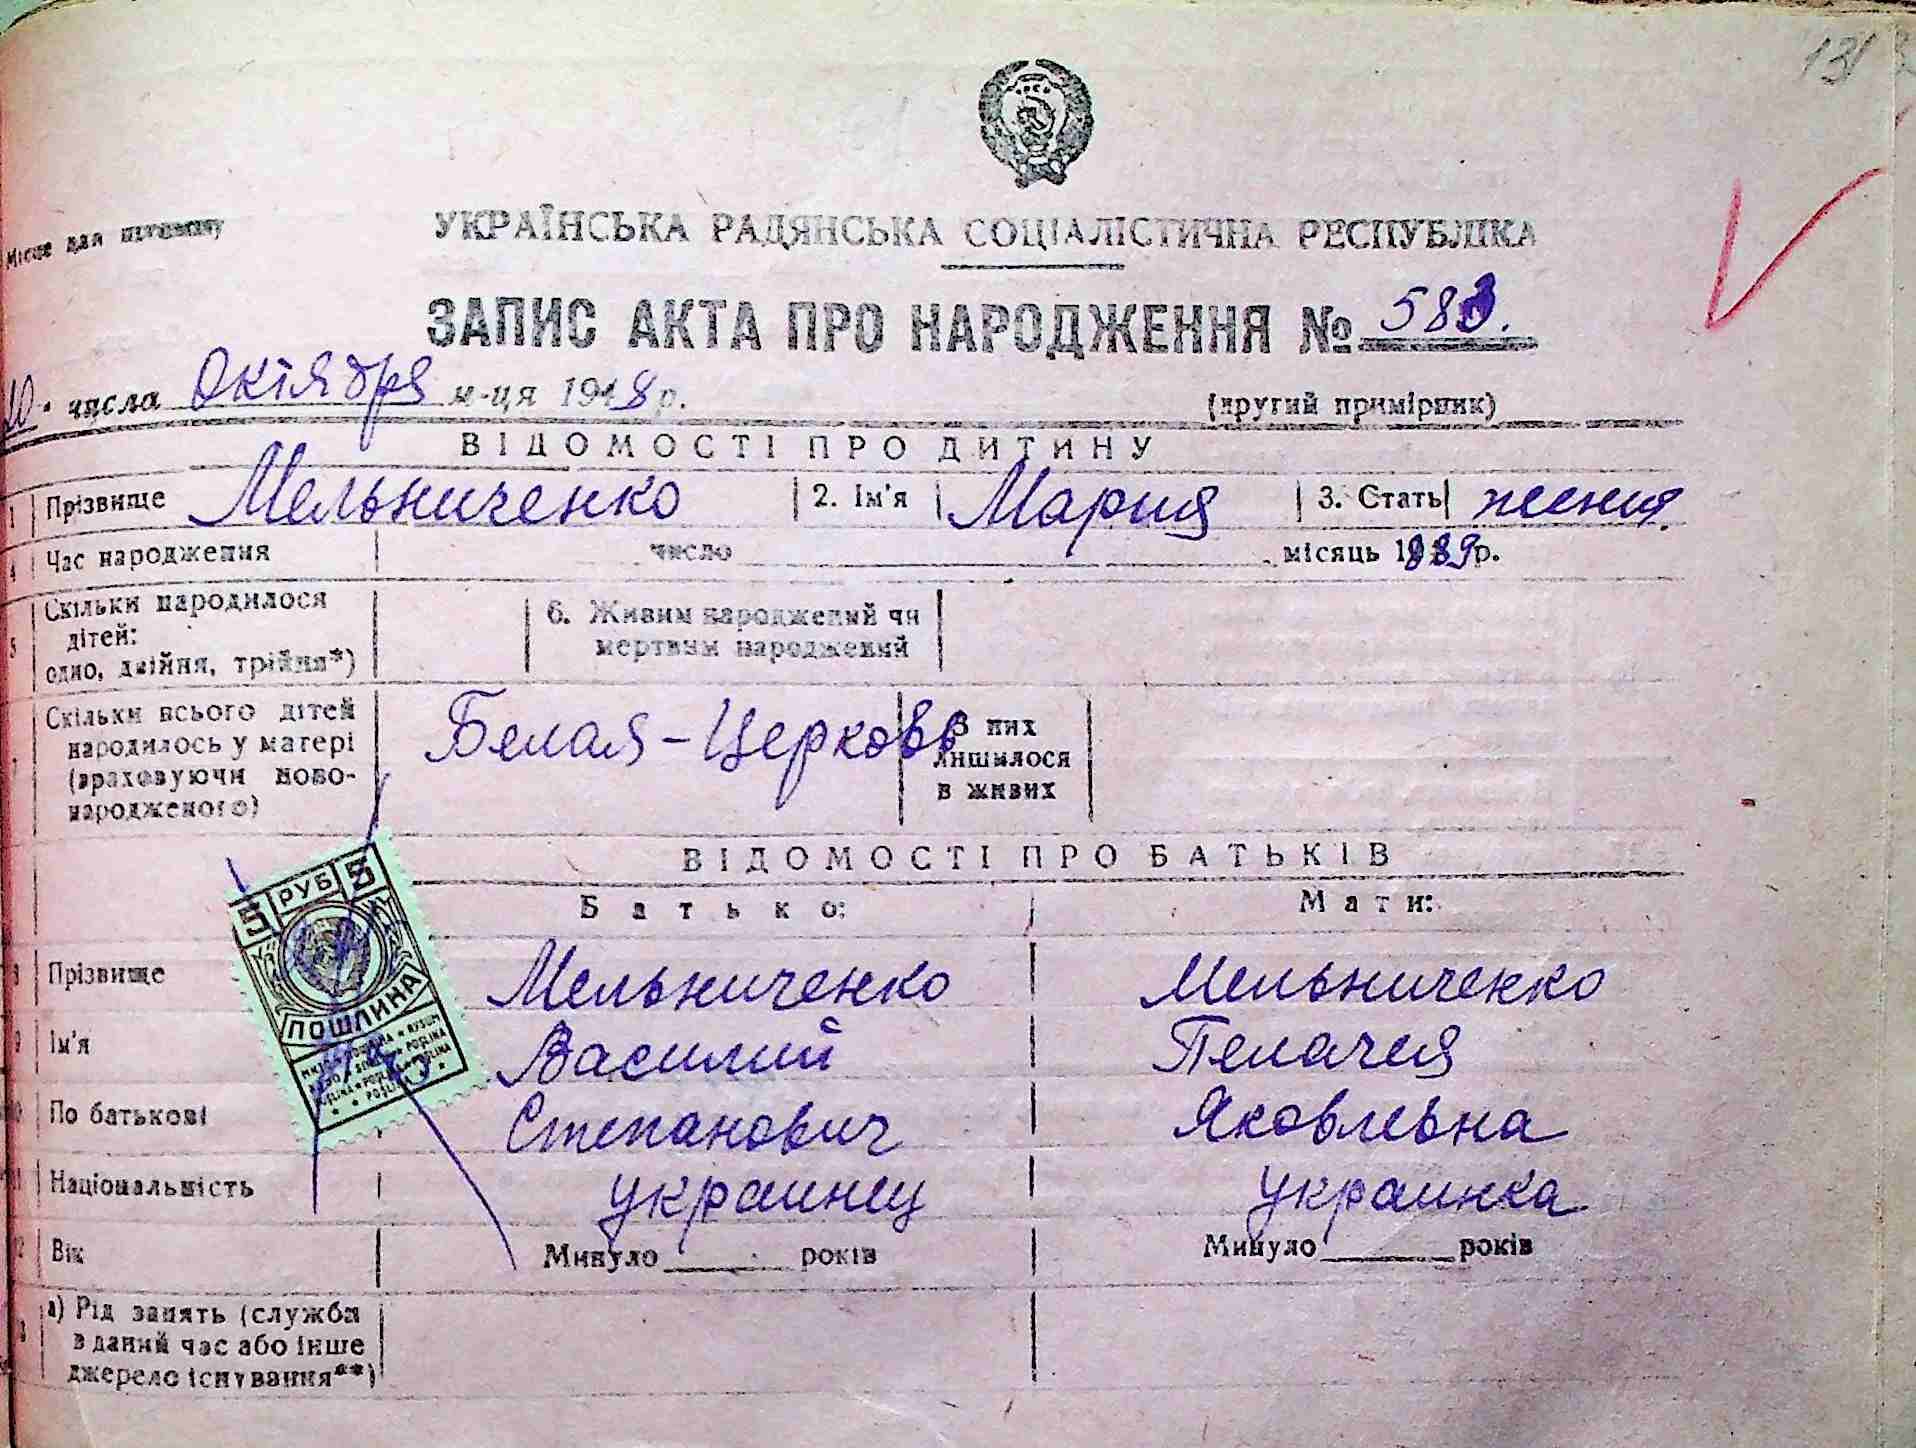 131
Місце для штемпелю
УКРАЇНСЬКА РАДЯНСЬКА СОЦІАЛІСТИЧНА РЕСПУБЛІКА
ЗАПИС АКТА ПРО НАРОДЖЕННЯ № 583.
числа октября м-ця 1948 р.
(другий примірник)
ВІДОМОСТІ ПРО ДИТИНУ
1 Прізвище Мельниченко 2. Ім'я Мария 3. Стать женщ.
4 Час народження число місяць 1889 р.
5 Скільки народилося дітей: одно, двійня, трійня*) 6. Живим народжений чи мертвим народжений
7 Скільки всього дітей народилось у матері (враховуючи ново-народженого) Белая-Церковь З них лишилося в живих
5 РУБ 5
ПОШЛИНА
ВІДОМОСТІ ПРО БАТЬКІВ
Батько: Мати:
8 Прізвище Мельниченко Мельниченко
9 Ім'я Василий Пелагея
10 По батькові Степанович Яковлевна
11 Національність украинец украинка
12 Вік Минуло років Минуло років
а) Рід занять (служба в даний час або інше джерело існування**)